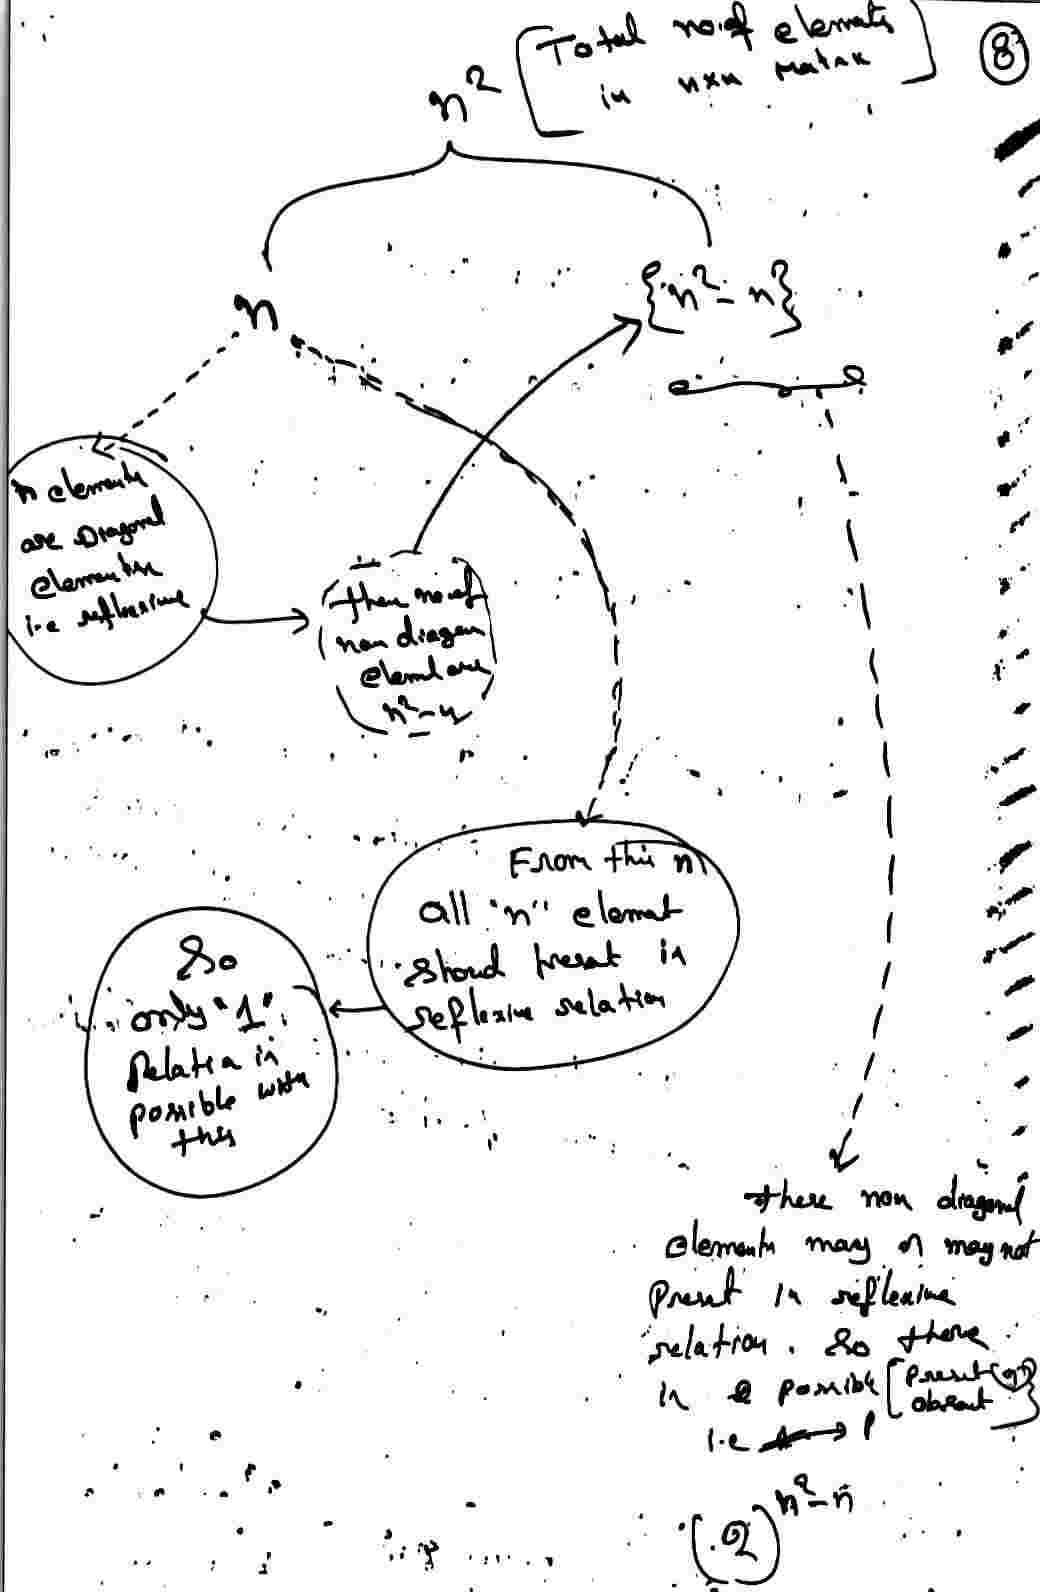 Total no.of elements
in n×n Matrix
8
n²
n
{n² - n}
n elements
are Diagonal
elements
i.e reflexive
then no.of
non diagon
elemt are
n² - n
From this n
all "n" elemat
shoud presat in
reflexive relation
So
only "1"
Relatia is
possible with
this
there non diagonal
elements may or may not
Preset in reflexive
relation. So there
is 2 possible [Preset (or)
absent]
i.e
(2)^{n² - n}